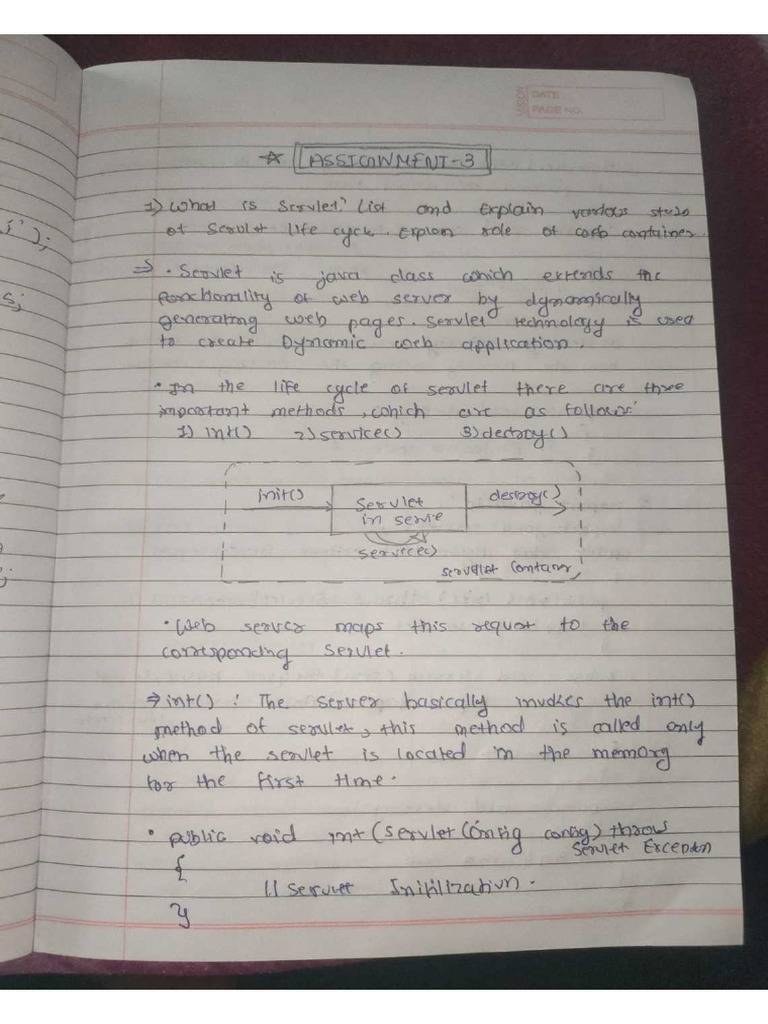 DATE
PAGE NO.
☆ ASSIGNMENT-3
1) What is Servlet? List and Explain various
of Servlet life cycle. Explain role of web container.
⇒ • Servlet is java class which extends the
functionality of web server by dgynamically
generating web pages. Servlet technology is used
to create Dynamic web application.
• In the life cycle of servlet there are three
important methods, which are as follows:
1) int() 2) service() 3) destroy()
init()
Servlet
in servie
destroy()
service()
servelet Container
• Web server maps this request to the
corresponding Servlet.
⇒ int() : The server basically invokes the int()
method of servlet, this method is called only
when the servlet is located in the memory
for the first time.
• public void int (Servlet Config config) throws
Servlet Exception
{
// Servlet
}